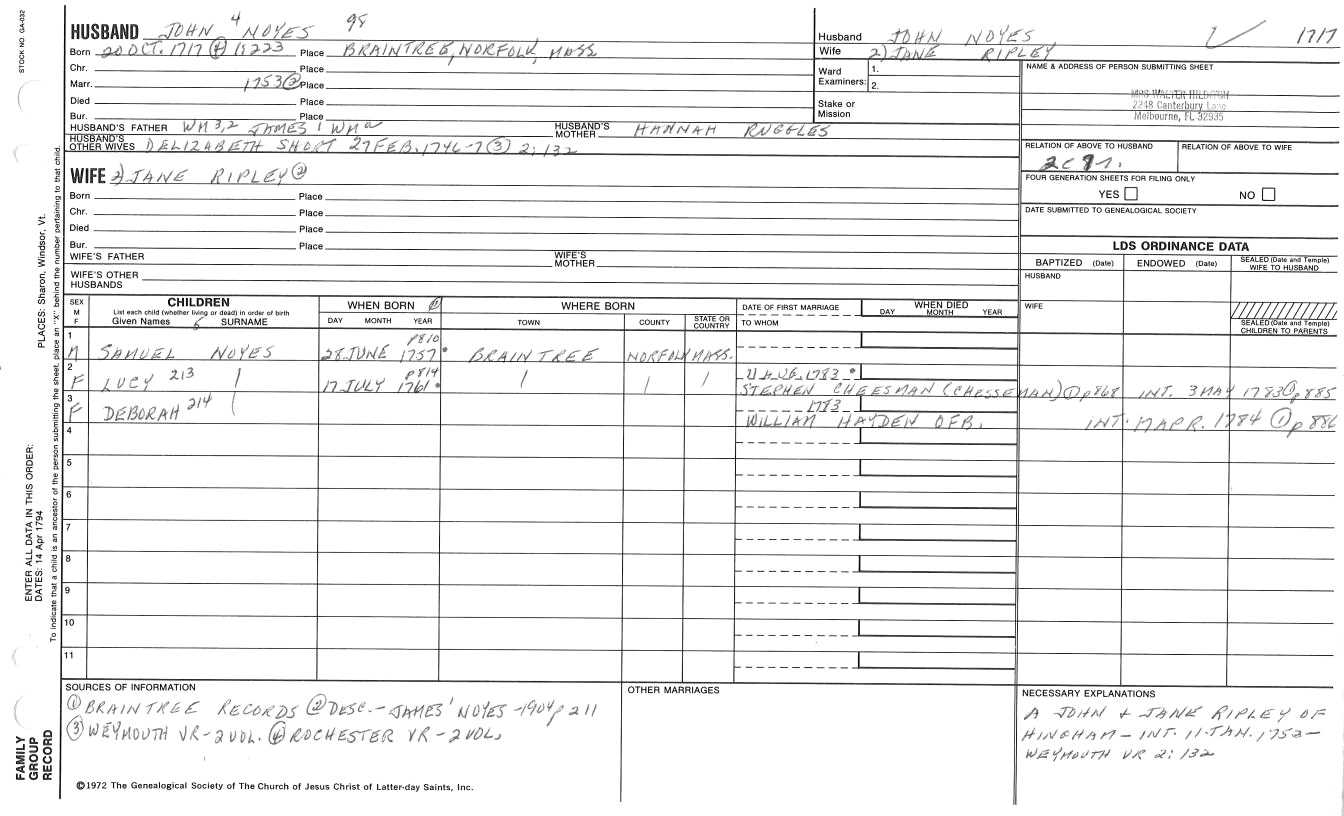 STOCK NO. GA-032
HUSBAND JOHN 4 NOYES 98
Born 20 OCT. 1717 ④ 1:223 Place BRAINTREE, NORFOLK, MASS
Chr. Place
Marr. 1753② Place
Died Place
Bur. Place
HUSBAND'S FATHER WM 3,2 JAMES 1 WM a HUSBAND'S MOTHER HANNAH RUGGLES
HUSBAND'S OTHER WIVES 1) ELIZABETH SHORT 27 FEB. 1746-7 ③ 2:132
WIFE 2) JANE RIPLEY ②
Born Place
Chr. Place
Died Place
Bur. Place
WIFE'S FATHER WIFE'S MOTHER
WIFE'S OTHER HUSBANDS
Husband JOHN NOYES 1717
Wife 2) JANE RIPLEY
Ward Examiners: 1.
2.
Stake or Mission
NAME & ADDRESS OF PERSON SUBMITTING SHEET
MRS WALTER HILDRETH
2248 Canterbury Lane
Melbourne, FL 32935
RELATION OF ABOVE TO HUSBAND RELATION OF ABOVE TO WIFE
FOUR GENERATION SHEETS FOR FILING ONLY
YES NO
DATE SUBMITTED TO GENEALOGICAL SOCIETY
LDS ORDINANCE DATA
BAPTIZED (Date) ENDOWED (Date) SEALED (Date and Temple) WIFE TO HUSBAND
HUSBAND
WIFE
SEALED (Date and Temple) CHILDREN TO PARENTS
SEX M F
CHILDREN
List each child (whether living or dead) in order of birth
Given Names 5 SURNAME
WHEN BORN ①
DAY MONTH YEAR
WHERE BORN
TOWN COUNTY STATE OR COUNTRY
DATE OF FIRST MARRIAGE
TO WHOM
WHEN DIED
DAY MONTH YEAR
1 p810
M SAMUEL NOYES 28 JUNE 1757 BRAINTREE NORFOLK MASS.
2 p814
F LUCY 213 17 JULY 1761 1783
STEPHEN CHEESMAN (CHESSEMAN) ① p868 INT. 3 MAY 1783 ① p885
3 1783
F DEBORAH 214 WILLIAM HAYDEN OFB. INT. 17 APR. 1784 ① p 886
4
5
6
7
8
9
10
11
SOURCES OF INFORMATION
① BRAINTREE RECORDS ② DESC.- JAMES' NOYES -1904 p 211
③ WEYMOUTH VR-2 VOL. ④ ROCHESTER VR-2 VOL.
OTHER MARRIAGES
NECESSARY EXPLANATIONS
A JOHN & JANE RIPLEY OF
HINGHAM - INT. 11 JAN. 1752 -
WEYMOUTH VR 2: 132
©1972 The Genealogical Society of The Church of Jesus Christ of Latter-day Saints, Inc.
FAMILY GROUP RECORD
ENTER ALL DATA IN THIS ORDER:
DATES: 14 Apr 1794 PLACES: Sharon, Windsor, Vt.
To indicate that a child is an ancestor of the person submitting the sheet, place an "X" behind the number pertaining to that child.